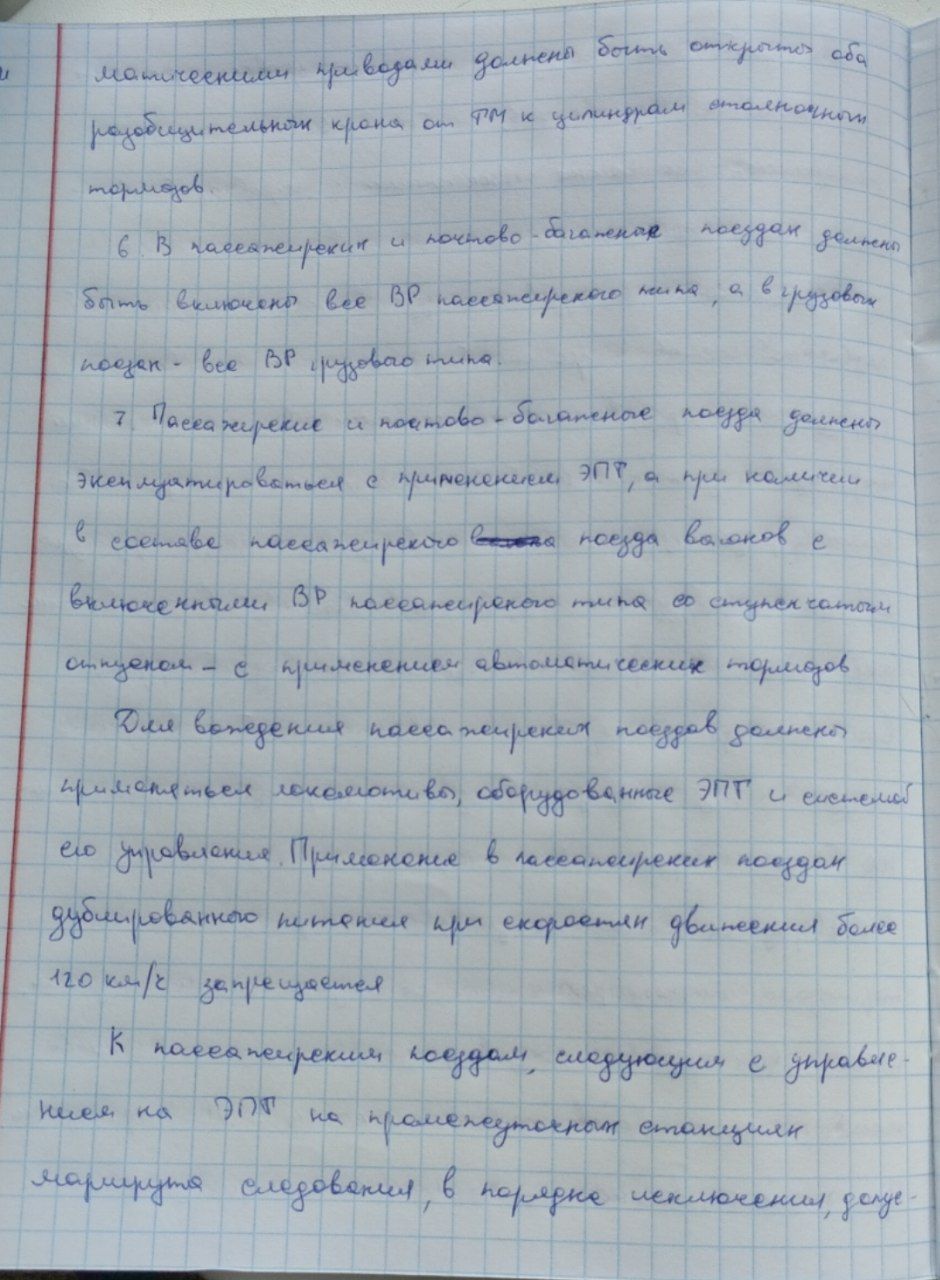 и
матическими приводами должны быть открыты оба
разобщительных крана от ТМ к цилиндрам стояночных
тормозов.
6. В пассажирских и почтово-багажных поездах должны
быть включены все ВР пассажирского типа, а в грузовых
поезах - все ВР грузового типа.
7. Пассажирские и почтово-багажные поезда должны
эксплуатироваться с применением ЭПТ, а при наличии
в составе пассажирского поезда вагонов с
включенными ВР пассажирского типа со ступенчатым
отпуском - с применением автоматических тормозов
Для вождения пассажирских поездов должны
применяться локомотивы, оборудованные ЭПТ и системой
его управления. Применение в пассажирских поездах
дублированного питания при скоростях движения более
120 км/ч запрещается
К пассажирским поездам, следующим с управле-
нием на ЭПТ на промежуточных станциях
маршрута следования, в порядке исключения, допус-